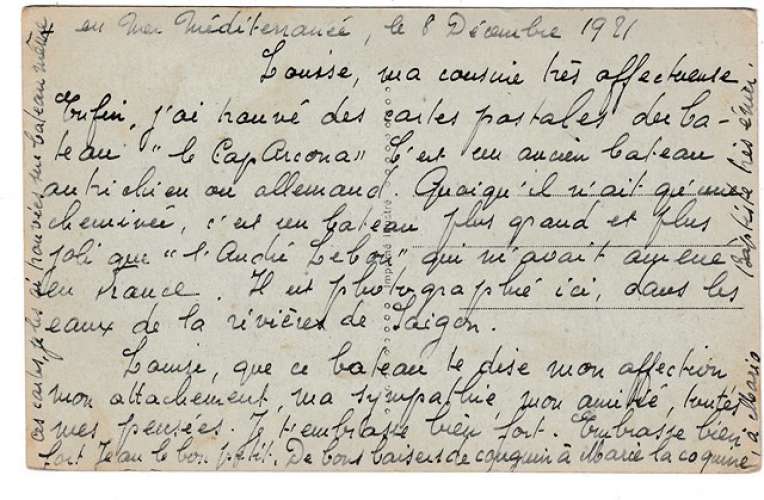 en Mer Méditerranée, le 8 Décembre 1921
Louise, ma cousine très affectueuse
Enfin, j'ai trouvé des cartes postales du ba-
teau "le Cap Arcona" C'est un ancien bateau
autrichien ou allemand. Quoiqu'il n'ait qu'une
cheminée, c'est un bateau plus grand et plus
joli que "l'André Lebon" qui m'avait amené
en France. Il est photographié ici, dans les
eaux de la rivière de Saigon.
Louise, que ce bateau te dise mon affection
mon attachement, ma sympathie, mon amitié, toutes
mes pensées. Je t'embrasse bien fort. Embrasse bien
fort Jean le bon petit. De bons baisers de couquin à Marie la coquine,
à Mario
Baptiste très
Ces cartes, je les ai trouvées sur bateau même
Imprimé